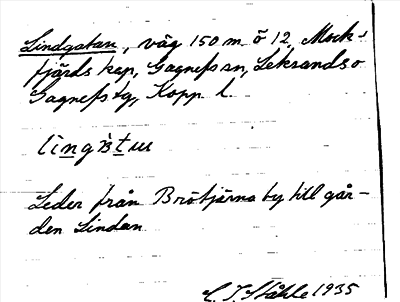 Lindgatan, väg 150 m ö 12, Mock-
fjärds kap, Gagnefs sn, Leksands o
Gagnefs tg, Kopp l.
Leder från Brötjärna by till går-
den Lindan
C. I. Ståhle 1935